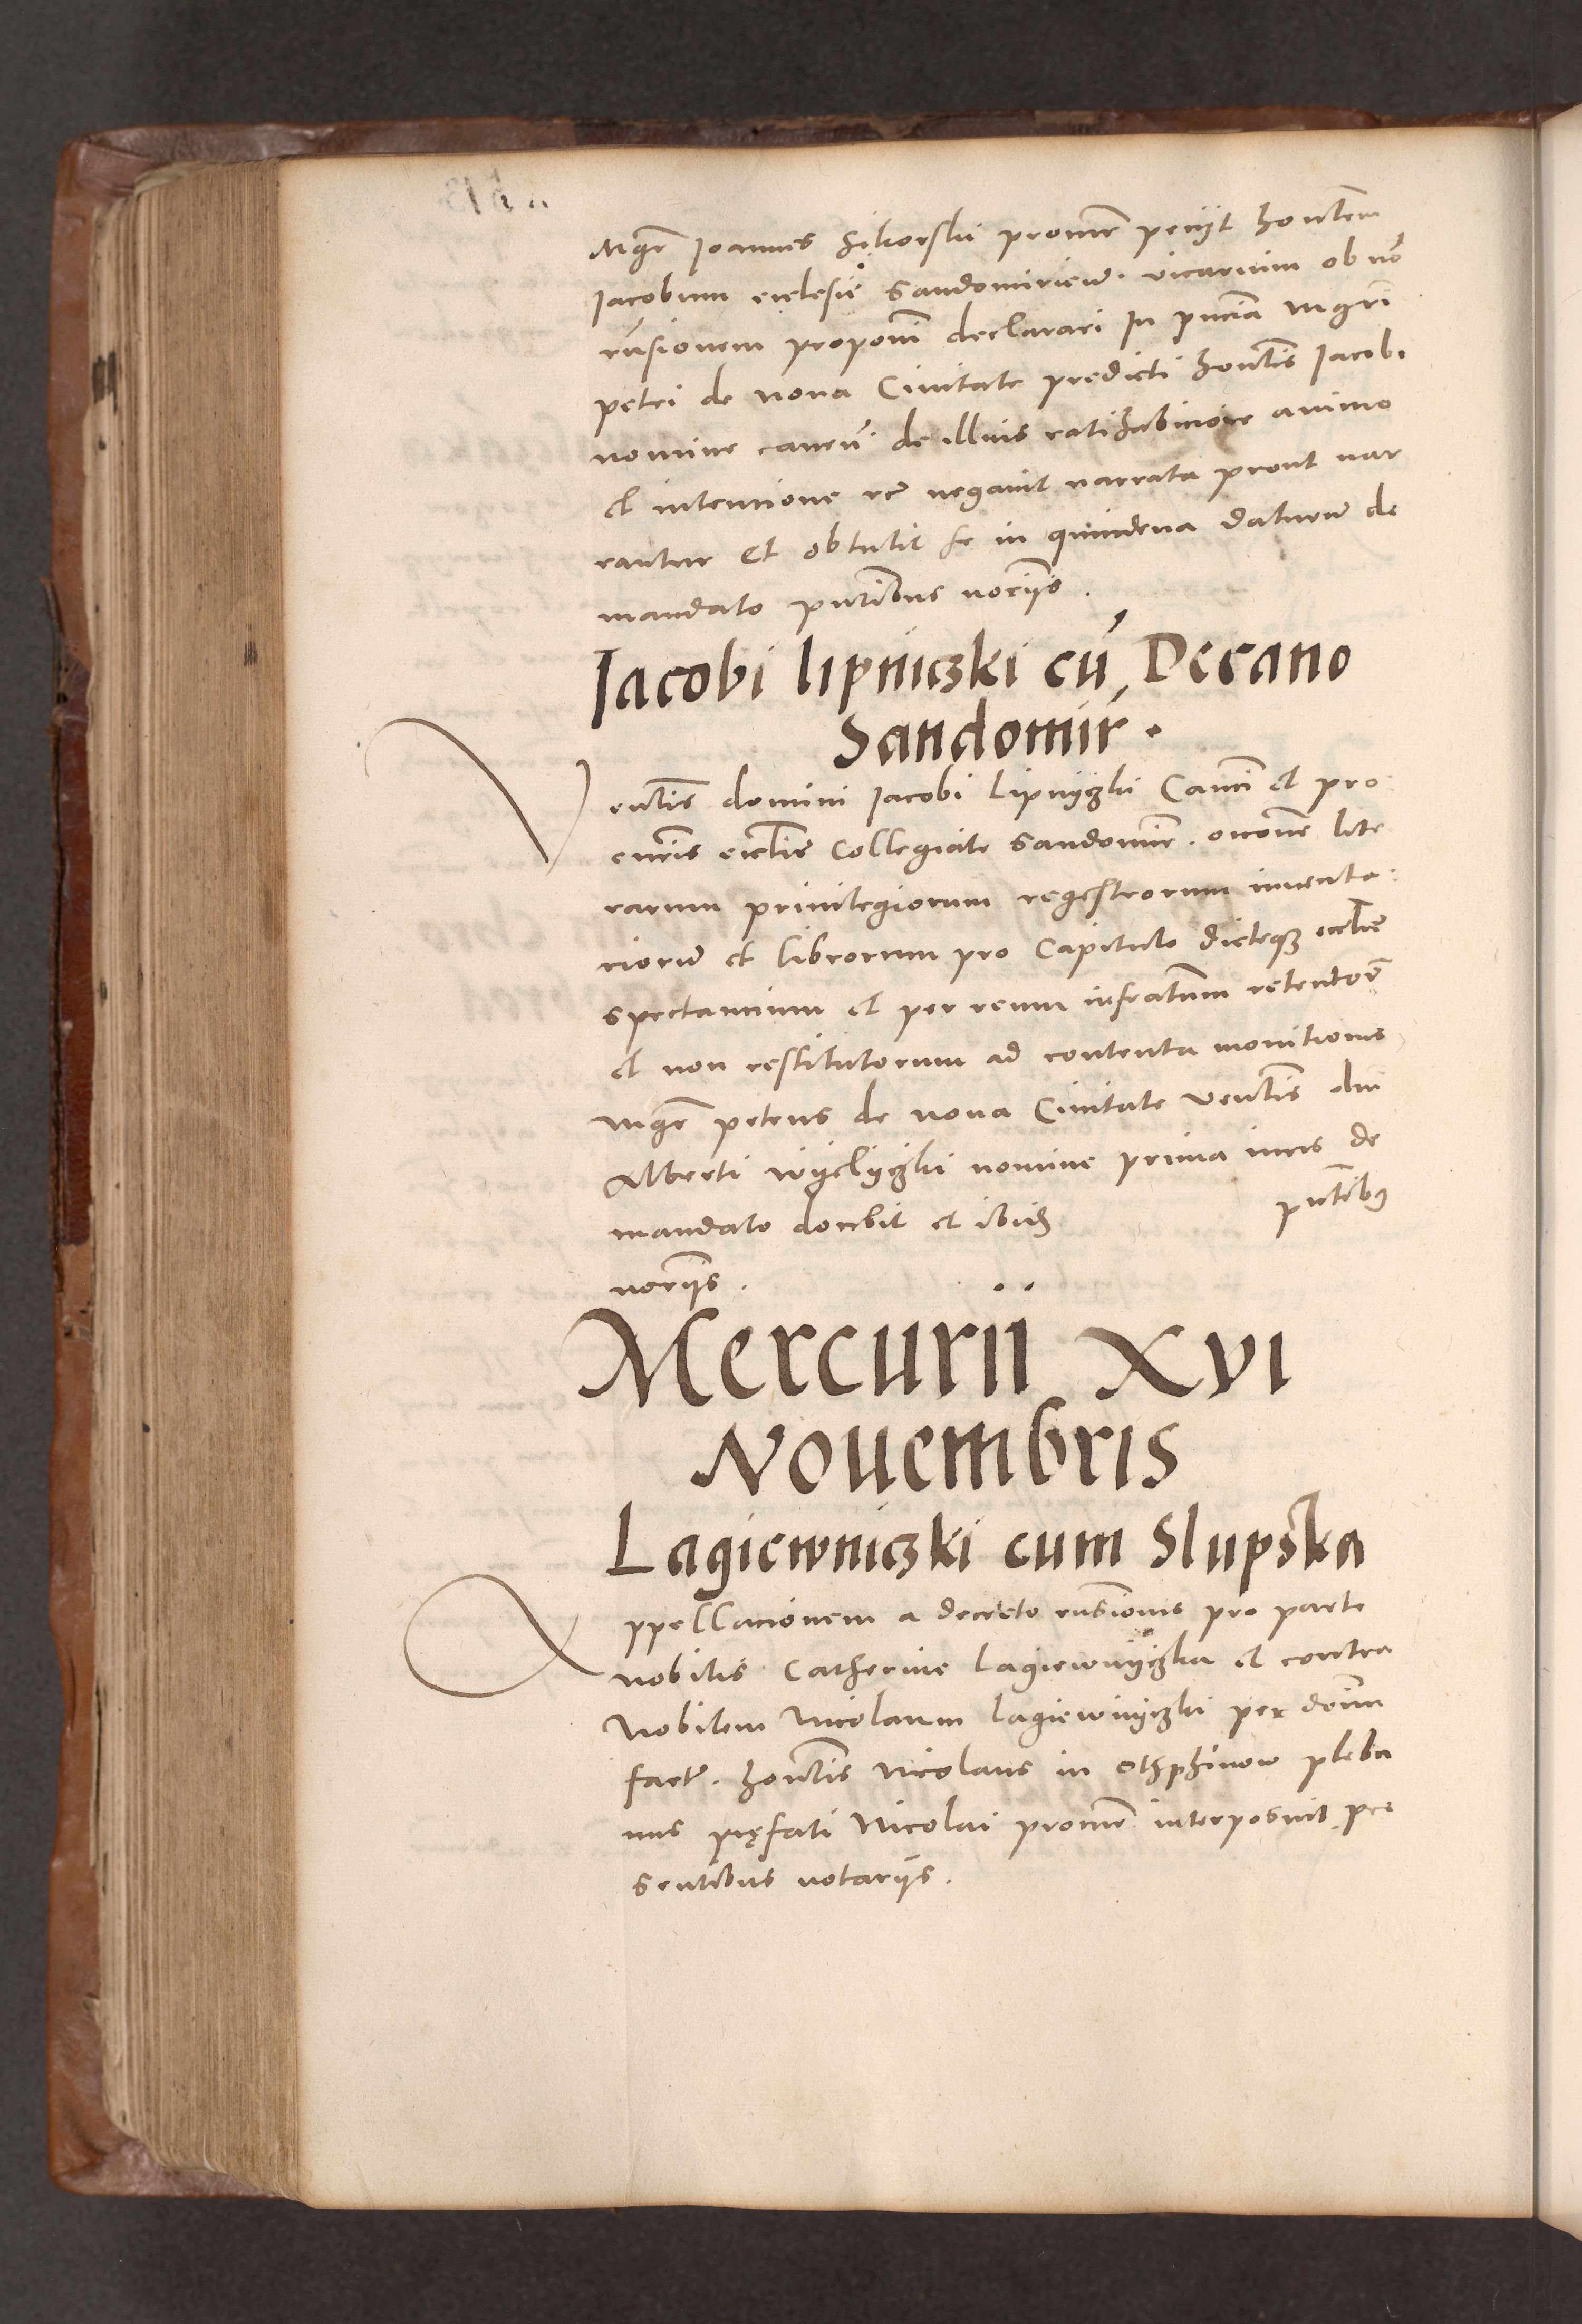 Mgr̃ Ioannes Sikorskii procur̃ pecijt hon̄tem
Iacobum ecclesiẽ Sandomirieñ. vicarium ob nõ
rñsionem proponi declarari In pñcia Mgr̃i
petri de nova Civitate predicti hon̄tis Iacobi
nomine caveñ de illius ratihabicione animo
et intencione &c negavit narrata prout nar
rantur Et obtulit se in quindena daturũ de
mandato pñtibus nor̃ijs.
Iacobi lipniczki cũ Decano
Sandomir̃.
Veñtis domini Iacobi Lipnyczki Canõci et pro
curr̃is eccliẽ Collegiate Sandomir̃. occoñe lite
rarum privilegiorum regestrorum inventa
riorũ et librorum pro Capitulo dicteqȝ eccliẽ
spectantium et per reum infratum retentor̃
et non restitutorum ad contenta monitionis
mgr̃ petrus de nova Civitate veñtis dñi
Alberti wyslyczki nomine prima iur̃is de
mandato docebit et ibidȝ pñtibȝ
nor̃ijs.
Mercurii Xvi
Nouembris
Lagiewniczki cum Slupska
Appellacionem a decreto rñsionis pro parte
nobilis Catherine Lagiewnyczka et contra
Nobilem Nicolaum lagiewnyczki per dõm
fact̃. hon̄tis Nicolaus in Othphinow pleba
nus pręfati Nicolai procur̃ interposuit pre
sentibus notarijs.